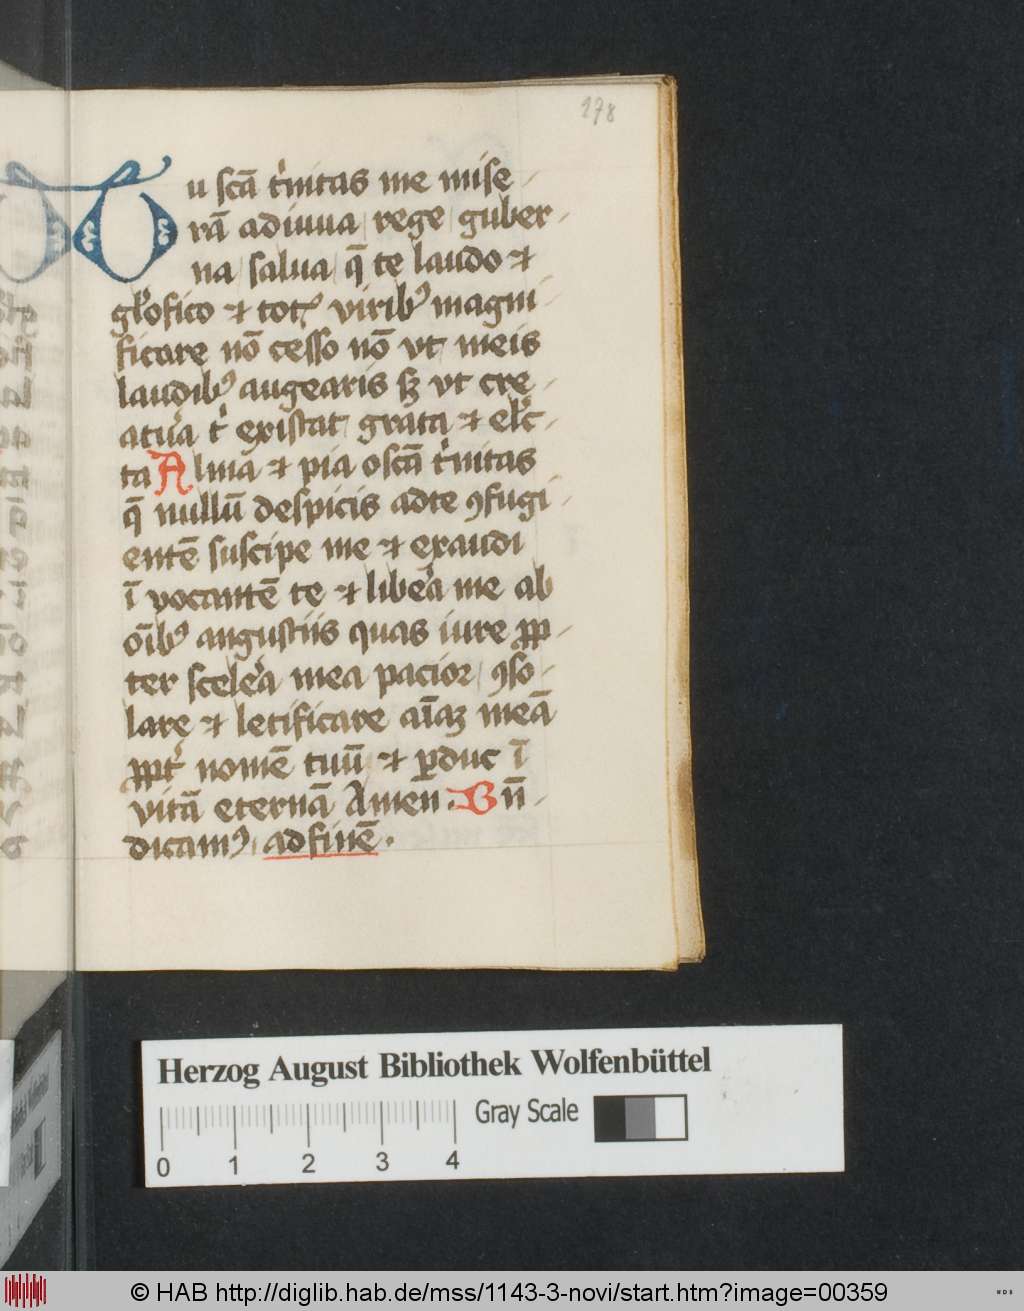 278
Tu scā t'nitas me mise
rā adiuua rege guber
na salua q̄ te laudo ⁊
gl'ofico ⁊ tot' viribꝰ magni
ficare nō cesso nō vt meis
laudibꝰ augearis sꝫ vt cre
atur'a t' existat grata ⁊ elc'
ta Alma ⁊ pia o scā t'nitas
q̄ nullū despicis ad te ꝯfugi
entē suscipe me ⁊ exaudi
ī vocantē te ⁊ libe'a me ab
oībꝰ angustiis quas iure ꝓp
ter scele'a mea pacior ꝯso
lare ⁊ letificare aīaꝫ meā
ꝓpt' nomē tuū ⁊ ꝑduc ī
vitā eternā Amen . Bn̄
dicamꝰ ad finē .
Herzog August Bibliothek Wolfenbüttel
Gray Scale
0 1 2 3 4
© HAB http://diglib.hab.de/mss/1143-3-novi/start.htm?image=00359